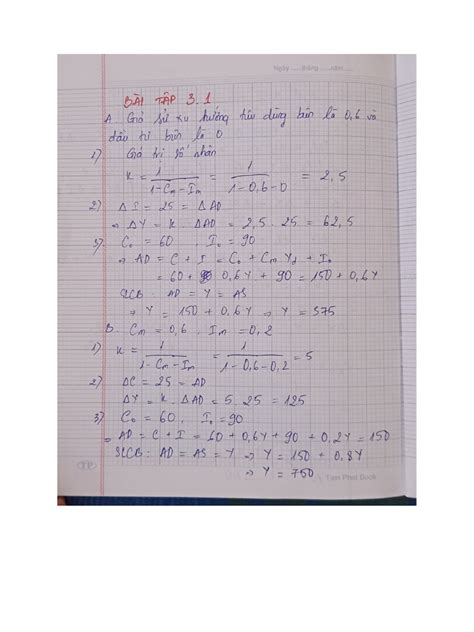 Ngày ......tháng ......năm......
BÀI TẬP 3.1
A. Giả sử xu hướng tiêu dùng biên là 0,6 và
đầu tư biên là 0
1) Giá trị số nhân
K = 1/(1-Cm-Im) = 1/(1-0,6-0) = 2,5
2) ΔI = 25 = ΔAD
⇒ ΔY = K. ΔAD = 2,5. 25 = 62,5
3) C₀ = 60 , I₀ = 90
⇒ AD = C + I = C₀ + Cm Yd + I₀
= 60 + 0,6Y + 90 = 150 + 0,6Y
SLCB: AD = Y = AS
⇒ Y = 150 + 0,6Y ⇒ Y = 375
B. Cm = 0,6 , Im = 0,2
1) K = 1/(1-Cm-Im) = 1/(1-0,6-0,2) = 5
2) ΔC = 25 = AD
ΔY = K. ΔAD = 5. 25 = 125
3) C₀ = 60 , I₀ = 90
⇒ AD = C + I = 60 + 0,6Y + 90 + 0,2Y = 150
SLCB: AD = AS = Y ⇒ Y = 150 + 0,8Y
⇒ Y = 750
TP
Tam Phat Book